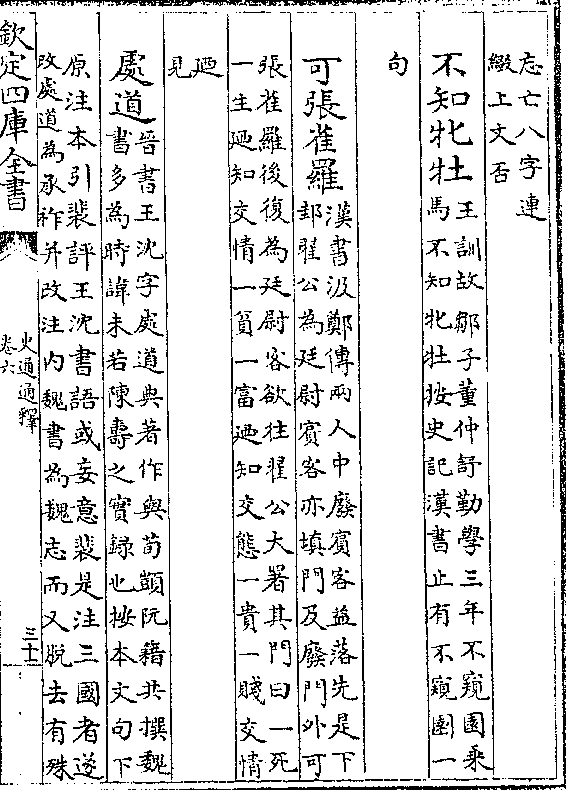 忘亡八字連
綴上文否
不知牝牡王訓故鄒子董仲舒勤學三年不窺園乗
馬不知牝牡按史記漢書止有不窺園一
句
可張雀羅漢書汲鄭傳兩人中廢賔客益落先是下
邽翟公為廷尉賔客亦填門及廢門外可
張雀羅後復為廷尉客欲往翟公大署其門曰一死
一生廼知交情一貧一富廼知交態一貴一賤交情
廼
見
處道晉書王沈字處道典著作與荀顗阮籍共撰魏
書多為時諱未若陳壽之實録也按本文句下
原注本引裴評王沈書語或妄意裴是注三國者遂
改處道為承祚并改注内魏書為魏志而又脱去有殊
欽定四庫全書
史通通釋
卷六
三十